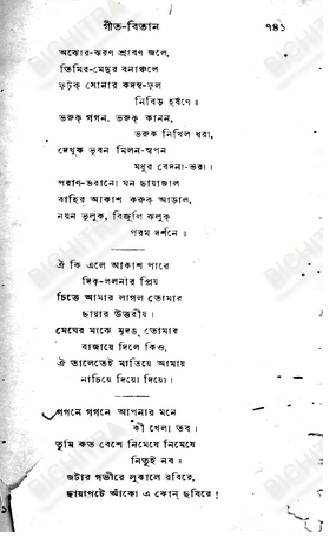 গীত-বিতান ৭৪১
অঝোর-ঝরণ শ্রাবণ জলে,
তিমির-মেদুর বনাঞ্চলে
ফুটুক্ সোনার কদম্ব-ফুল
নিবিড় হর্ষণে ॥
ভরুক্ গগন, ভরুক্ কানন,
ভরুক নিখিল ধরা,
দেখুক্ ভুবন মিলন-স্বপন
মধুর বেদনা-ভরা।
পরাণ-ভরানো ঘন ছায়াজাল
বাহির আকাশ করুক্ আড়াল,
নয়ন ভুলুক, বিজুলি ঝলুক্
পরম দর্শনে ॥
ঐ কি এলে আকাশ পারে
দিক্-ললনার প্রিয়
চিত্তে আমার লাগল তোমার
ছায়ার উত্তরীয়।
মেঘের মাঝে মৃদঙ্ তোমার
বাজায়ে দিলে কিও,
ঐ তালেতেই মাতিয়ে আমায়
নাচিয়ে দিয়ো দিয়ো।
গগনে গগনে আপনার মনে
কী খেলা তব।
তুমি কত বেশে নিমেষে নিমেষে
নিতুই নব ॥
জটার গভীরে লুকালে রবিরে,
ছায়াপটে আঁকো এ কোন্ ছবিরে!
BICHITRA